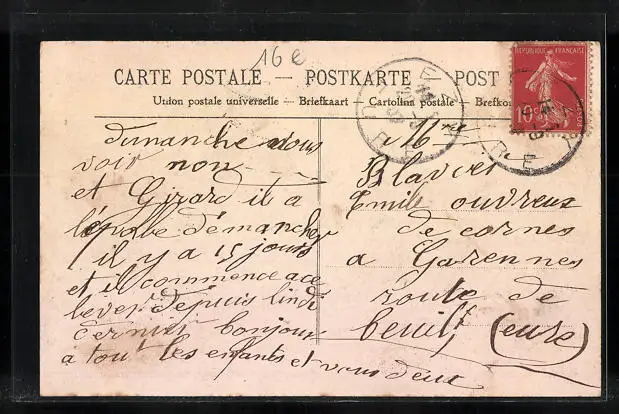 16 e
CARTE POSTALE — POSTKARTE — POST
Union postale universelle — Briefkaart — Cartolina postale — Brefko
REPUBLIQUE FRANÇAISE
10
POSTES
dimanche vous
voir non
et Girard il a
démanché
il y a 15 jours
et il commence a ce
lever depuis lindi
dernier bonjour
a tout les enfants et vous deux
Blavet
Emile ouvreur
de cornes
a Garennes
route de
beuil, (eure)